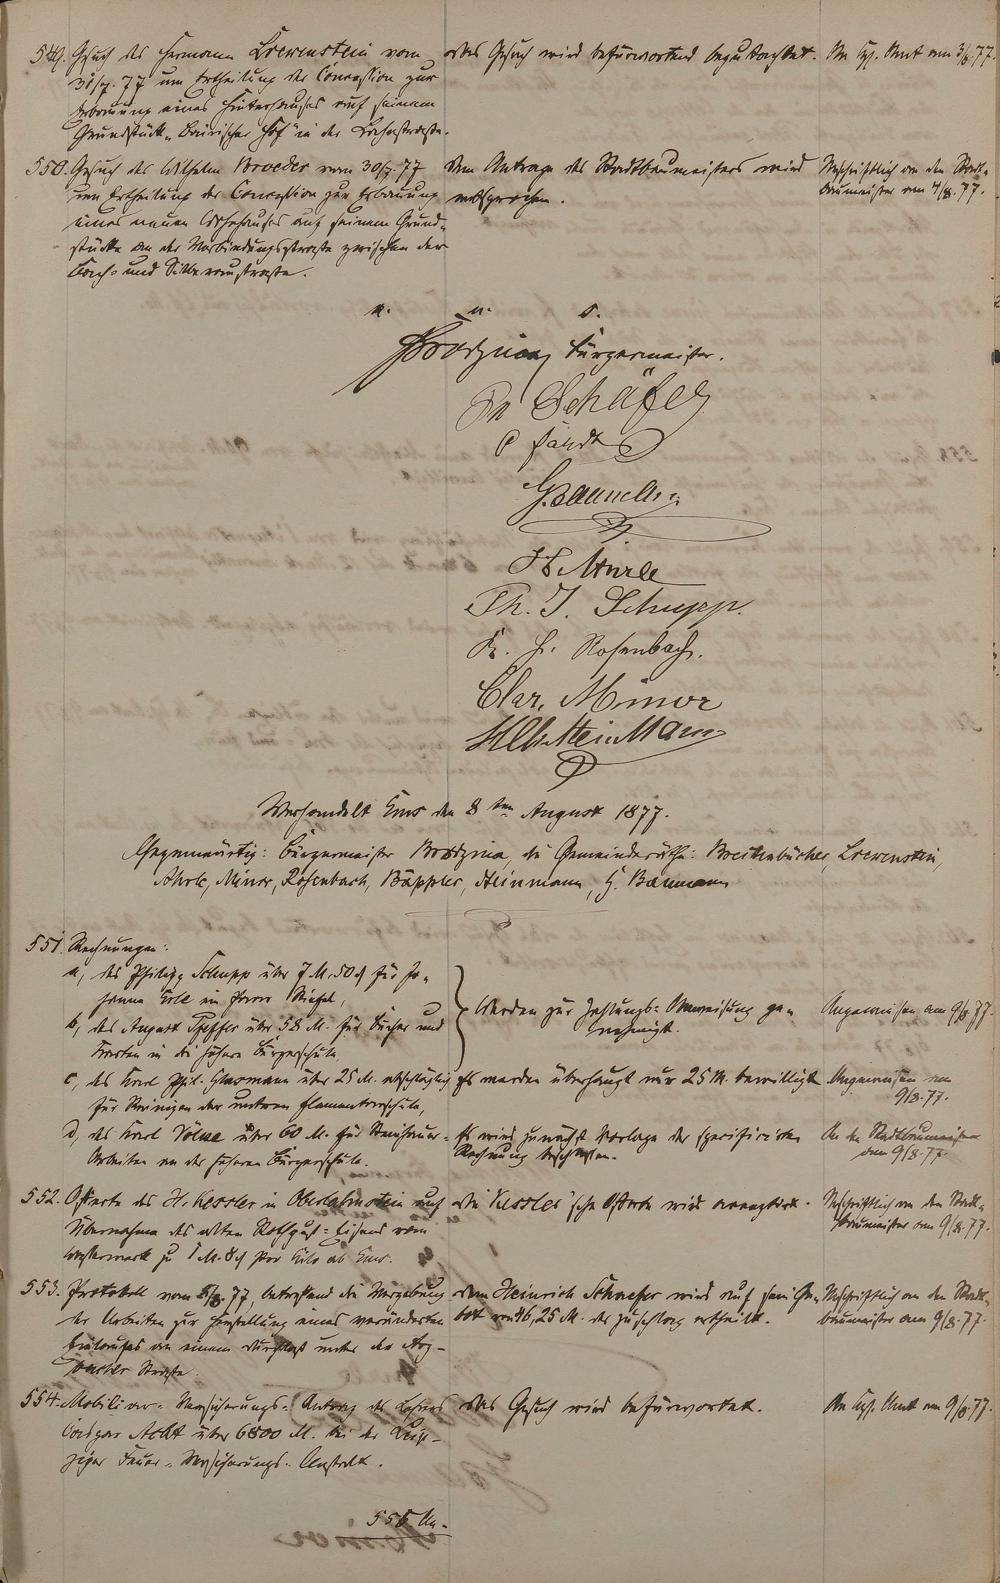 549. Gesuch des Hermann Loewenstein vom
31/7. 77 um Ertheilung der Concession zur
Erbauung eines Hinterhauses auf seinem
Grundstück „Bairischer Hof" in der Bachstrasse.
Das Gesuch wird befürwortend begutachtet.
An Kgl. Amt am 3/8. 77.
550. Gesuch des Wilhelm Broeder vom 30/7. 77
um Ertheilung der Concession zur Erbauung
eines neuen Wohnhauses auf seinem Grund-
stücke an der Verbindungsstrasse zwischen der
Bach- und Silberaustrasse.
Dem Antrage des Stadtbaumeisters wird
entsprochen.
Abschriftlich an den Stadt-
baumeister am 4/8. 77.
u. s.
Bürgermeister.
Schäfer
G. Baumann
Th. J. Schupp.
H. Rosenbach.
Chr. Minor
Steinmann
Verhandelt Ems den 8ten August 1877.
Gegenwärtig: Bürgermeister die Gemeinderäthe: Breitenbücher, Loewenstein,
Minor, Rosenbach, Bäppler, Steinmann, G. Baumann
551. Rechnungen:
a, des Philipp Schupp über 7 M. 50 für Jo-
hanna Stiefel,
b, des August Pfeffer über 58 M. für Bücher und
Karten in die höhere Bürgerschule,
Werden zur Zahlungs-Anweisung ge-
nehmigt.
Angewiesen am 9/8. 77.
c, des Karl Phil. Glasmann über 25 M. abschläglich
für Reinigen der unteren Elementarschule,
Es werden überhaupt nur 25 M. bewilligt
Angewiesen am
9/8. 77.
d, des Karl über 60 M. für Steinhauer-
Arbeiten an der höheren Bürgerschule.
Es wird zunächst Vorlage der specificirten
Rechnung beschlossen.
An den Stadtbaumeister
am 9/8. 77.
552. Offerte des H. Kessler in Oberlahnstein auf
Übernahme des alten Rothguss-Eisens vom
zu 1 M. 8 pro Kilo ab Ems.
Die Kessler'sche Offerte wird acceptirt.
Abschriftlich an den Stadt-
baumeister am 9/8. 77.
553. Protokoll vom 77, betreffend die Vergebung
der Arbeiten zur Herstellung eines veränderten
Einlaufes an einem Durchlass unter der Arz-
bacher Strasse.
Dem Heinrich Schaefer wird auf sein Ge-
bot von 46,25 M. der Zuschlag ertheilt.
Abschriftlich an den Stadt-
baumeister am 9/8. 77.
554. Mobiliar-Versicherungs-Antrag des Lehrers
über 6800 M. bei der Leip-
ziger Feuer-Versicherungs-Anstalt.
Das Gesuch wird befürwortet.
An Kgl. Amt am 9/8. 77.
555 An-